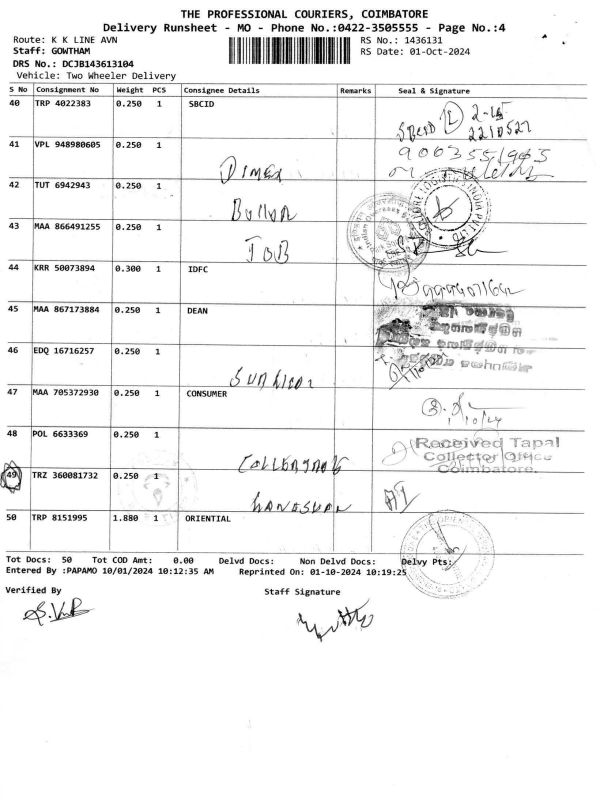 THE PROFESSIONAL COURIERS, COIMBATORE
Delivery Runsheet - MO - Phone No.:0422-3505555 - Page No.:4
Route: K K LINE AVN RS No.: 1436131
Staff: GOWTHAM RS Date: 01-Oct-2024
DRS No.: DCJB143613104
Vehicle: Two Wheeler Delivery
S No Consignment No Weight PCS Consignee Details Remarks Seal & Signature
40 TRP 4022383 0.250 1 SBCID
2210527
41 VPL 948980605 0.250 1
9003551965
42 TUT 6942943 0.250 1
43 MAA 866491255 0.250 1
44 KRR 50073894 0.300 1 IDFC
45 MAA 867173884 0.250 1 DEAN
46 EDQ 16716257 0.250 1
47 MAA 705372930 0.250 1 CONSUMER
1/10/24
48 POL 6633369 0.250 1
Received Tapal
Collector Office
Coimbatore.
49 TRZ 360081732 0.250 1
50 TRP 8151995 1.880 1 ORIENTIAL
Tot Docs: 50 Tot COD Amt: 0.00 Delvd Docs: Non Delvd Docs: Delvy Pts:
Entered By :PAPAMO 10/01/2024 10:12:35 AM Reprinted On: 01-10-2024 10:19:25
Verified By Staff Signature